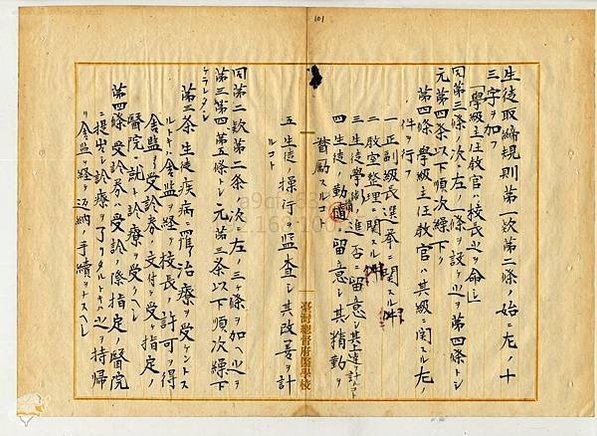 101
生徒取締規則第一款第二條ノ始ニ左ノ十
三字ヲ加フ
學級主任教官ハ校長之ヲ命シ
同第三條ノ次ニ左ノ一條ヲ設ケ之ヲ第四條トシ
元第四條以下順次繰下ク
第四條 學級主任教官ハ其級ニ関スル左ノ
件ヲ行フ
一 正副級長選挙ニ関スル件
二 教室整理ニ関スル件
三 生徒學術ノ進否ニ留意シ其上達ヲ計ルコト
四 生徒ノ勤惰ニ留意シ其精勤ヲ
奬励スルコト
五 生徒ノ操行ヲ監査シ其改善ヲ計
ルコト
同第二款第二条ノ次ニ左ノ三ヶ條ヲ加ヘ之ヲ
第三第四第五條トシ元第三条以下順次繰下
第三条 生徒疾病ニ罹リ治療ヲ受ケントス
ルトキハ舎監ヲ経テ校長ノ許可ヲ得
舎監ヨリ受診券ノ交付ヲ受ケ指定ノ
醫院ニ就キ診療ヲ受クヘシ
第四條 受診券ハ受診ノ際指定ノ醫院
ニ提出シ診療ヲ了リタルトキハ之ヲ持帰
リ舎監ヲ経テ返納ノ手續ヲナスヘシ
臺灣總督府醫學校